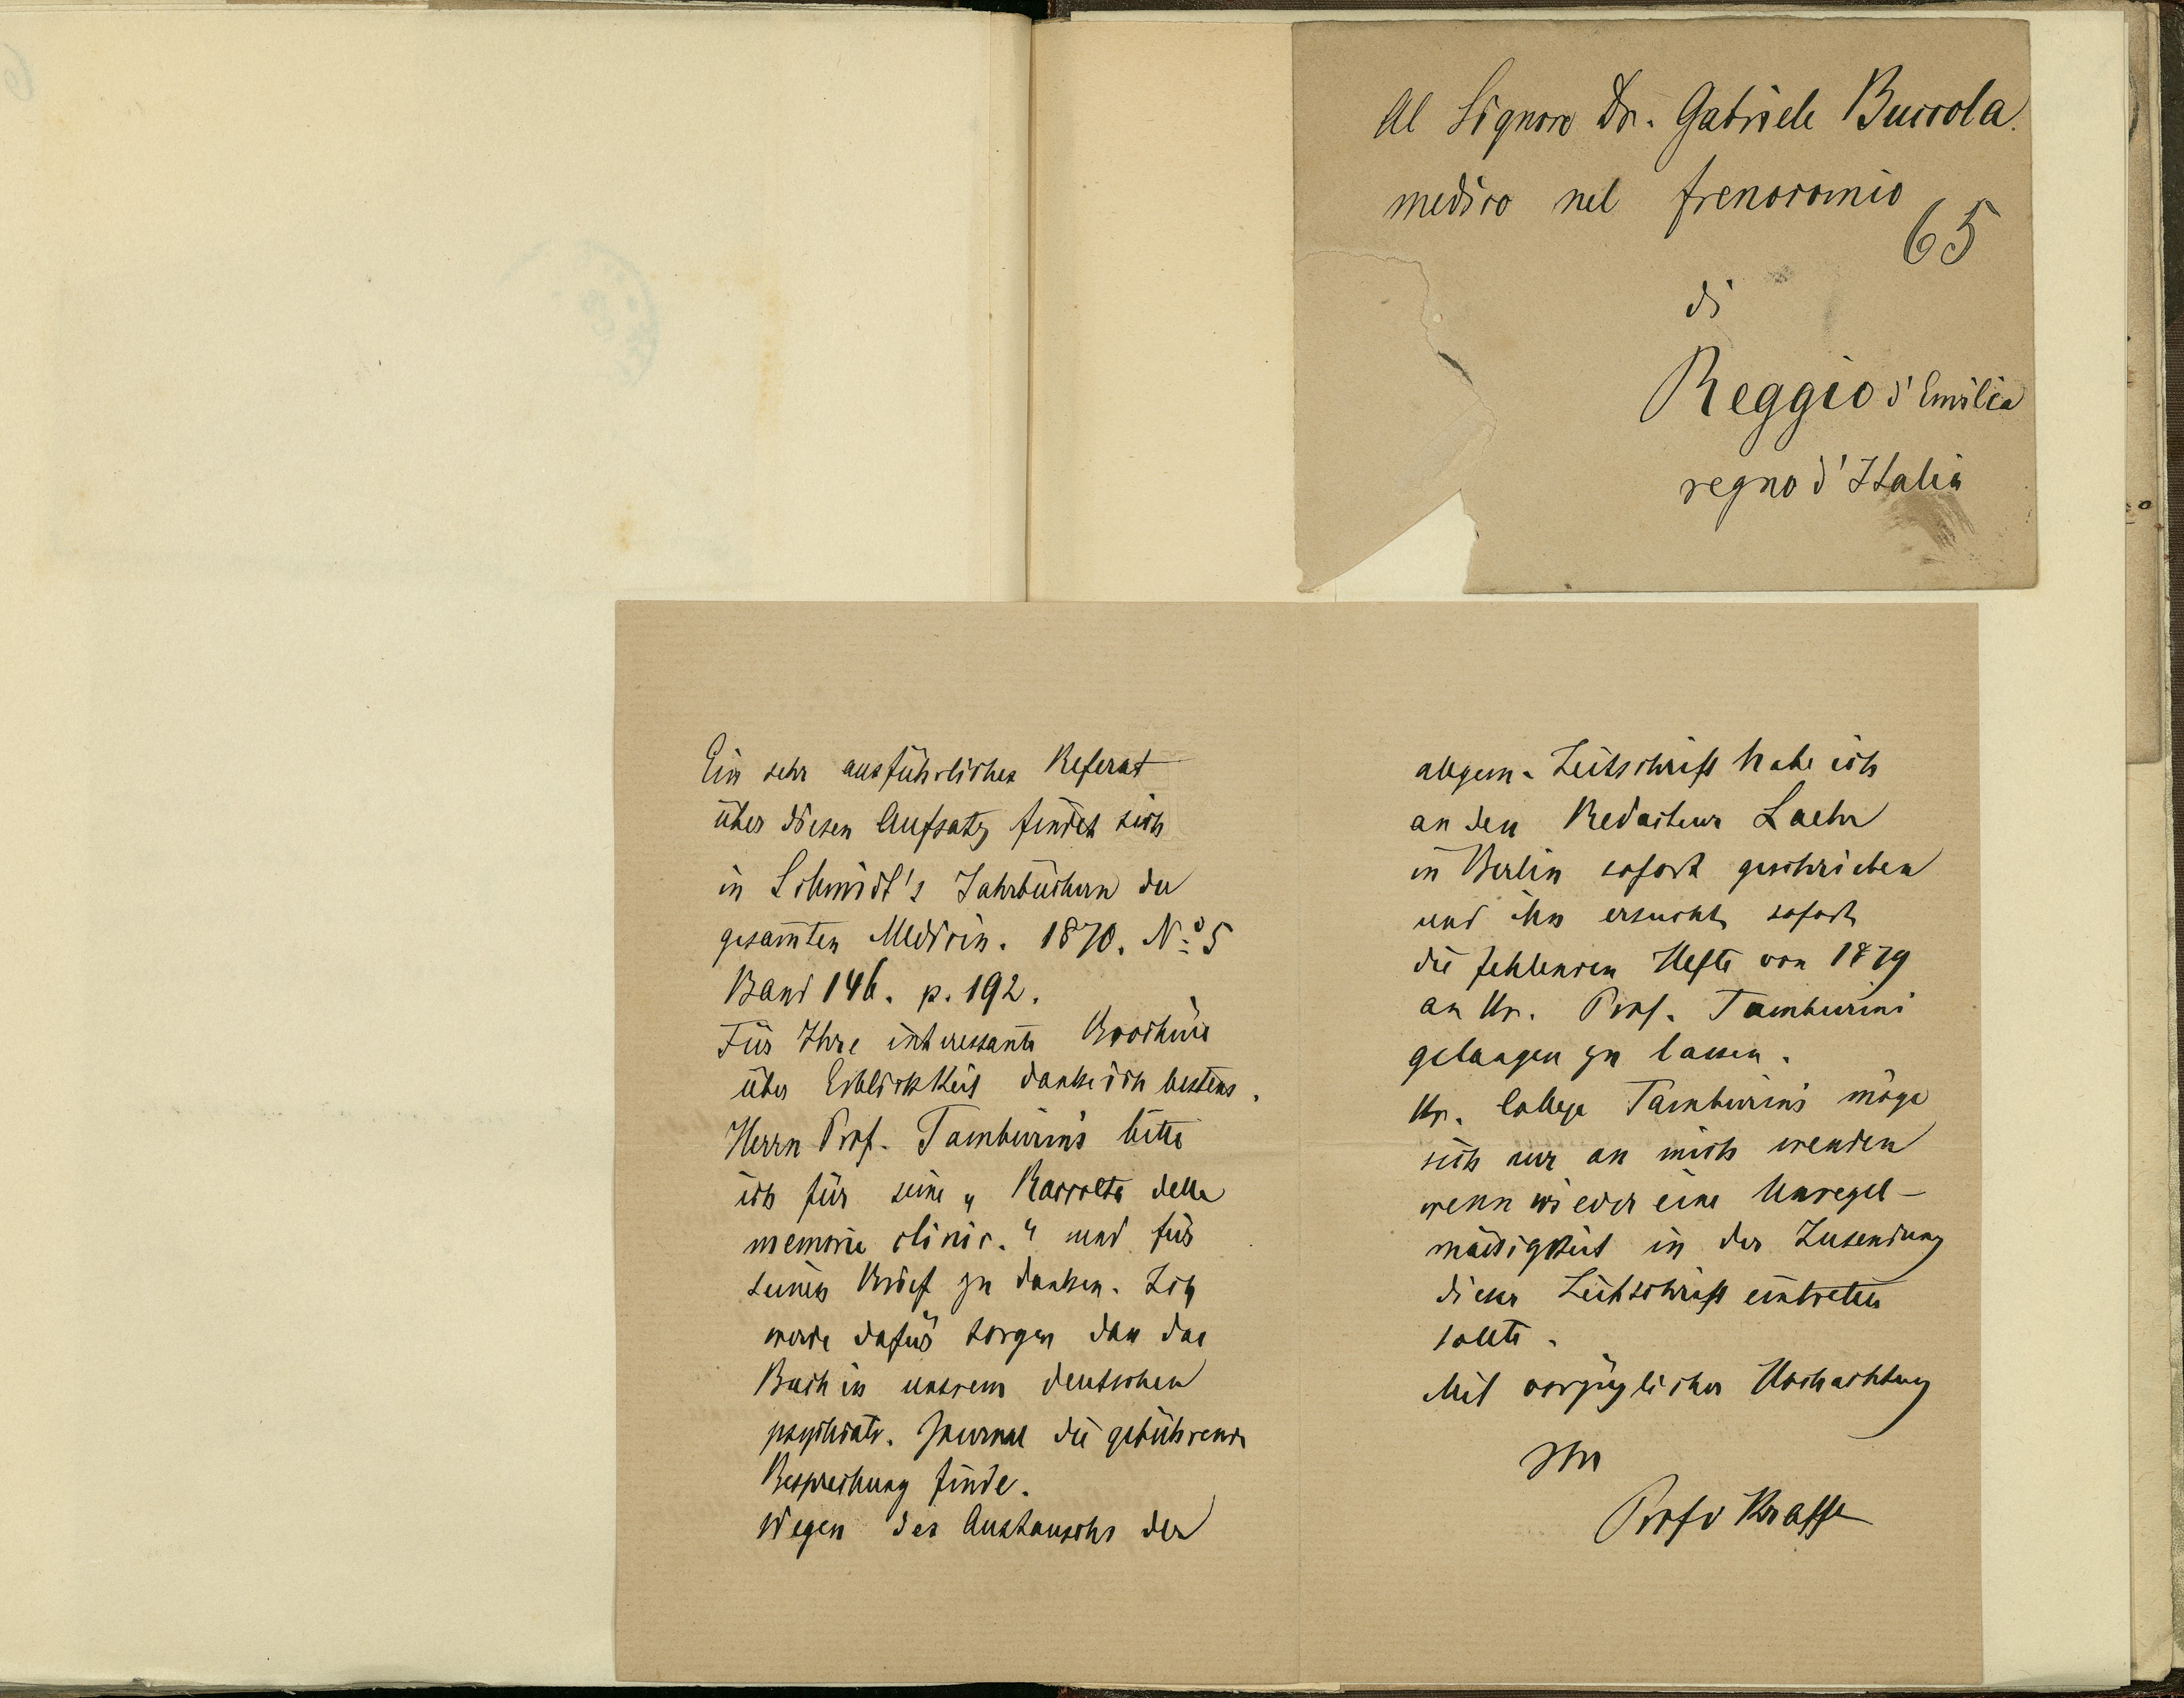 Al Signore Dr. Gabriele Buccola.
medico nel frenocomio
65
di
Reggio d'Emilia
regno d'Italia
Ein sehr ausführliches Referat
über diesen Aufsatz findet sich
in Schmidt's Jahrbüchern der
gesam̄ten Medicin. 1870. No. 5
Band 146. p. 192.
Für Ihre interessante Brochüre
über Erblichkeit danke ich bestens.
Herrn Prof. Tamburini bitte
ich für seine „Raccolta delle
memorie clinic.“ und für
seinen Brief zu danken. Ich
werde dafür sorgen dass das
Buch in unsrem deutschen
psychiatr. Journal die gebührende
Besprechung finde.
Wegen des Austauschs der
allgem. Zeitschrift habe ich
an den Redacteur Laehr
in Berlin sofort geschrieben
und ihn ersucht, sofort
die fehlenden Hefte von 1879
an Hr. Prof. Tamburini
gelangen zu lassen.
Hr. College Tamburini möge
sich nur an mich wenden
wenn wieder eine Unregel-
mässigkeit in der Zusendung
dieser Zeitschrift eintreten
sollte.
Mit vorzüglicher Hochachtung
Ihr
Prof v Krafft